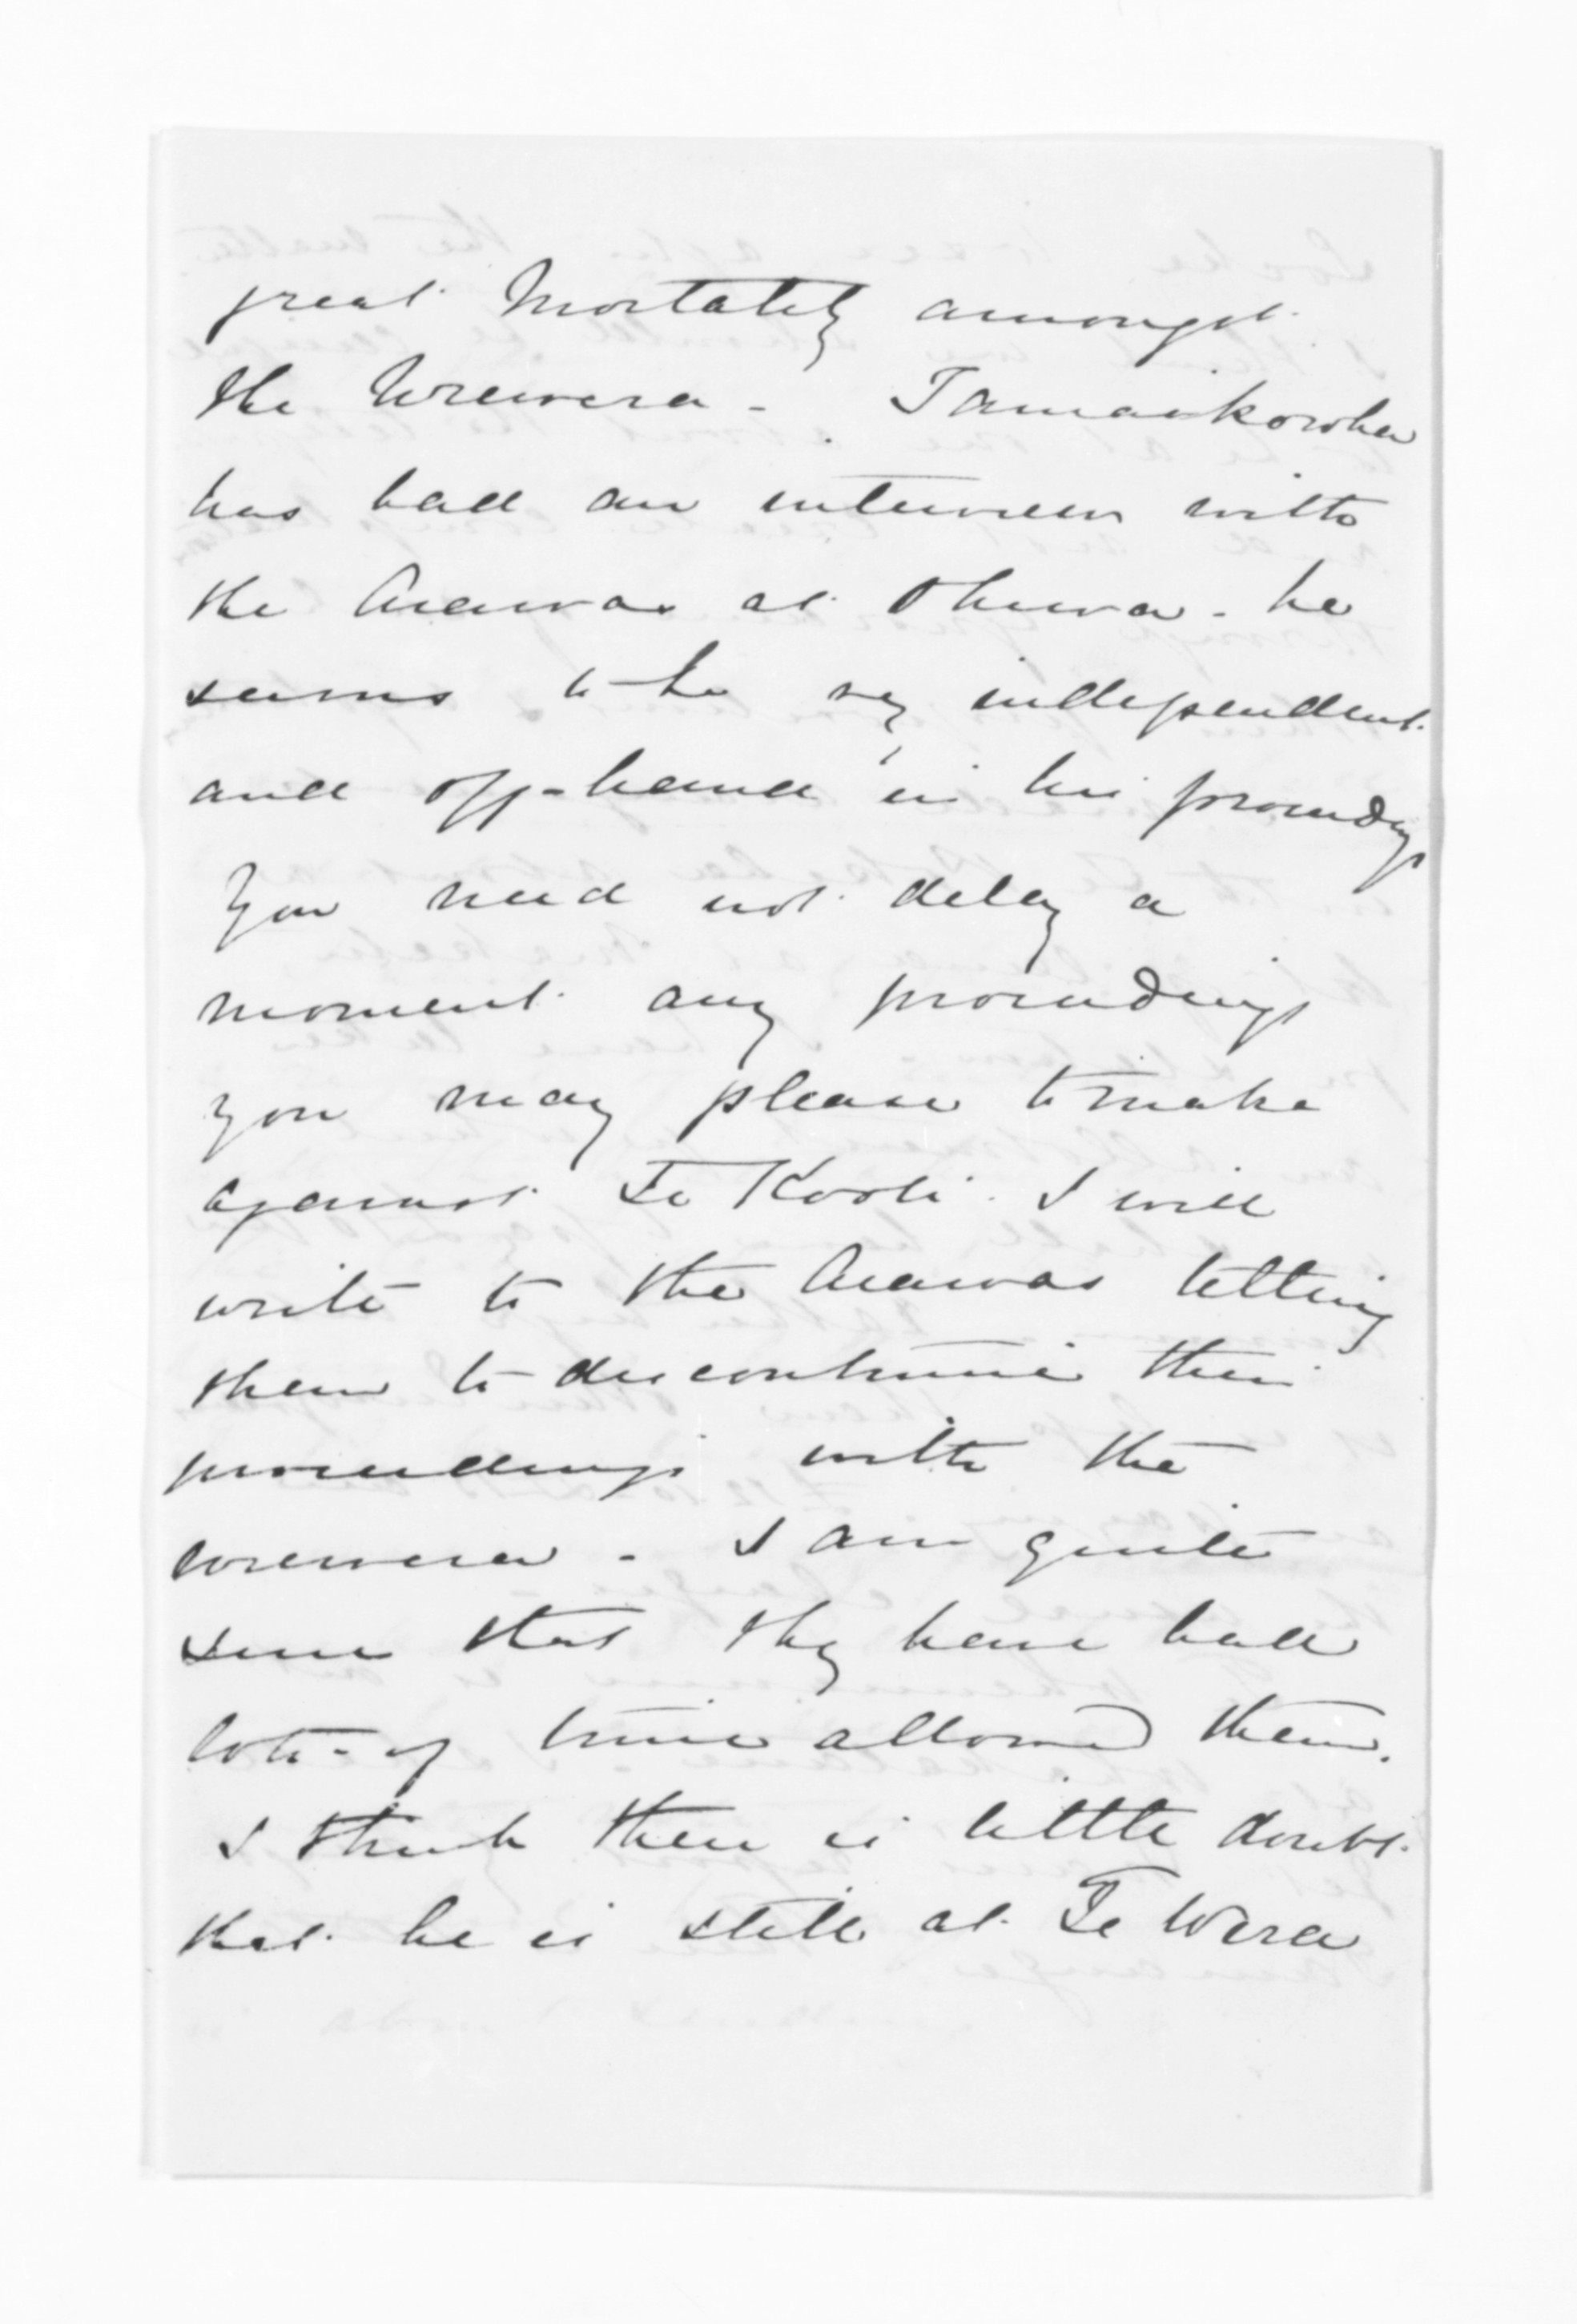 great Mortality amongst
the Urewera - Tamaikowha
has had an interview with
the Arawas at Ohiwa - he
seems to be very independent
and off-hand in his proceedings
You need not delay a
moment any proceedings
you may please to make
against Te Kooti. I will
write to the Arawas telling
them to discontinue their
proceedings with the
Urewera - I am quite
sure that they have had
lots of time allowed them.
I think there is little doubt
that he is still at Te Wera